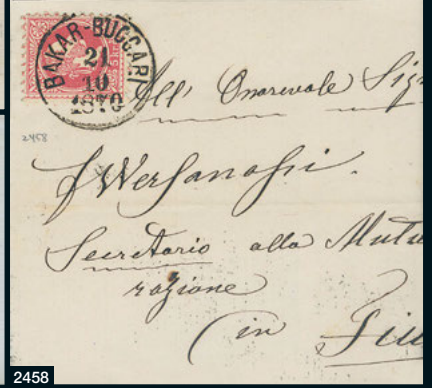 BAKAR-BUCCARI
21
10
1870
All' Onorevole Sig
2458
Secretario alla Mutu
razione
(in Fiu
2458